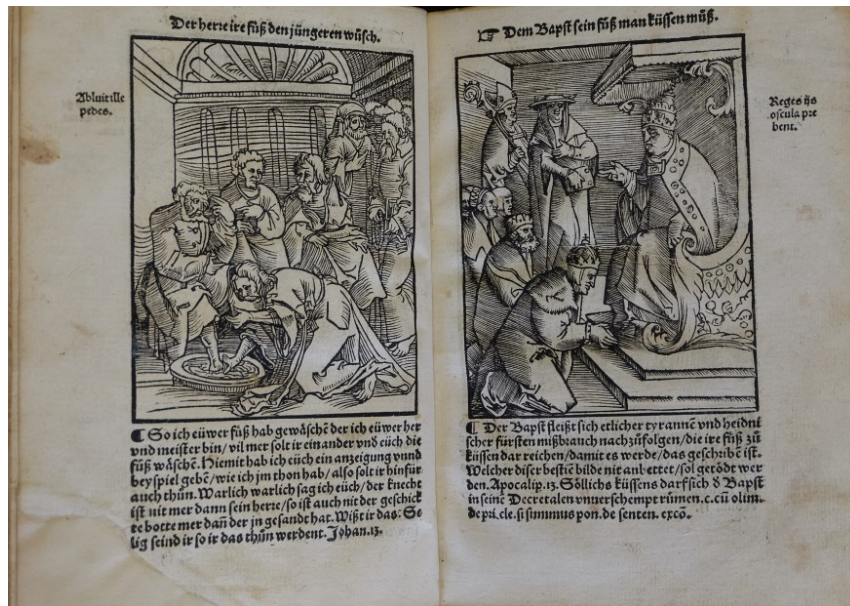 Der herre ire fuͤß den jüngeren wuͤsch.
Abluit ille
pedes.
¶ So ich eüwer fuͤß hab gewäschẽ der ich eüwer her
vnd meister bin / vil mer solt ir einander vnd eüch die
fuͤß wäschẽ. Hiemit hab ich eüch ein anzeigung vnnd
beyspiel gebẽ / wie ich jm thon hab / also solt ir hinfür
auch thuͤn. Warlich warlich sag ich eüch / der knecht
ist nit mer dann sein herre / so ist auch nit der geschick
te botte mer dañ der jn gesandt hat. Wißt ir das: Se
lig seind ir so ir das thuͤn werdent. Johan. 13.
☞ Dem Bapst sein fuͤß man küssen muͤß.
Reges ijs
oscula pre
bent.
¶ Der Bapst fleißt sich etlicher tyrannẽ vnd heidni
scher fürsten mißbrauch nachzuͤfolgen / die ire fuͤß zuͤ
küssen dar reichen / damit es werde / das geschribẽ ist.
Welcher diser bestiẽ bilde nit anbettet / sol getödt wer
den. Apocalip. 13. Söllichs küssens darf sich đ Bapst
in seinẽ Decretalen vnuerschempt ruͤmen. c. cũ olim.
de pri. cle. si summus pon. de senten. excõ.